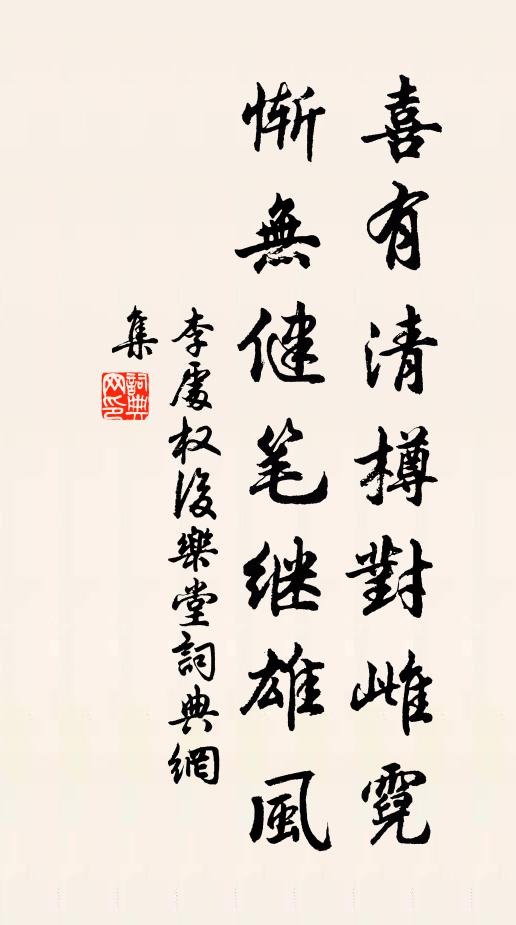 喜有清樽對雌霓
慚無健笔继雄風
李處权後樂堂詞典網
集
詞典网印